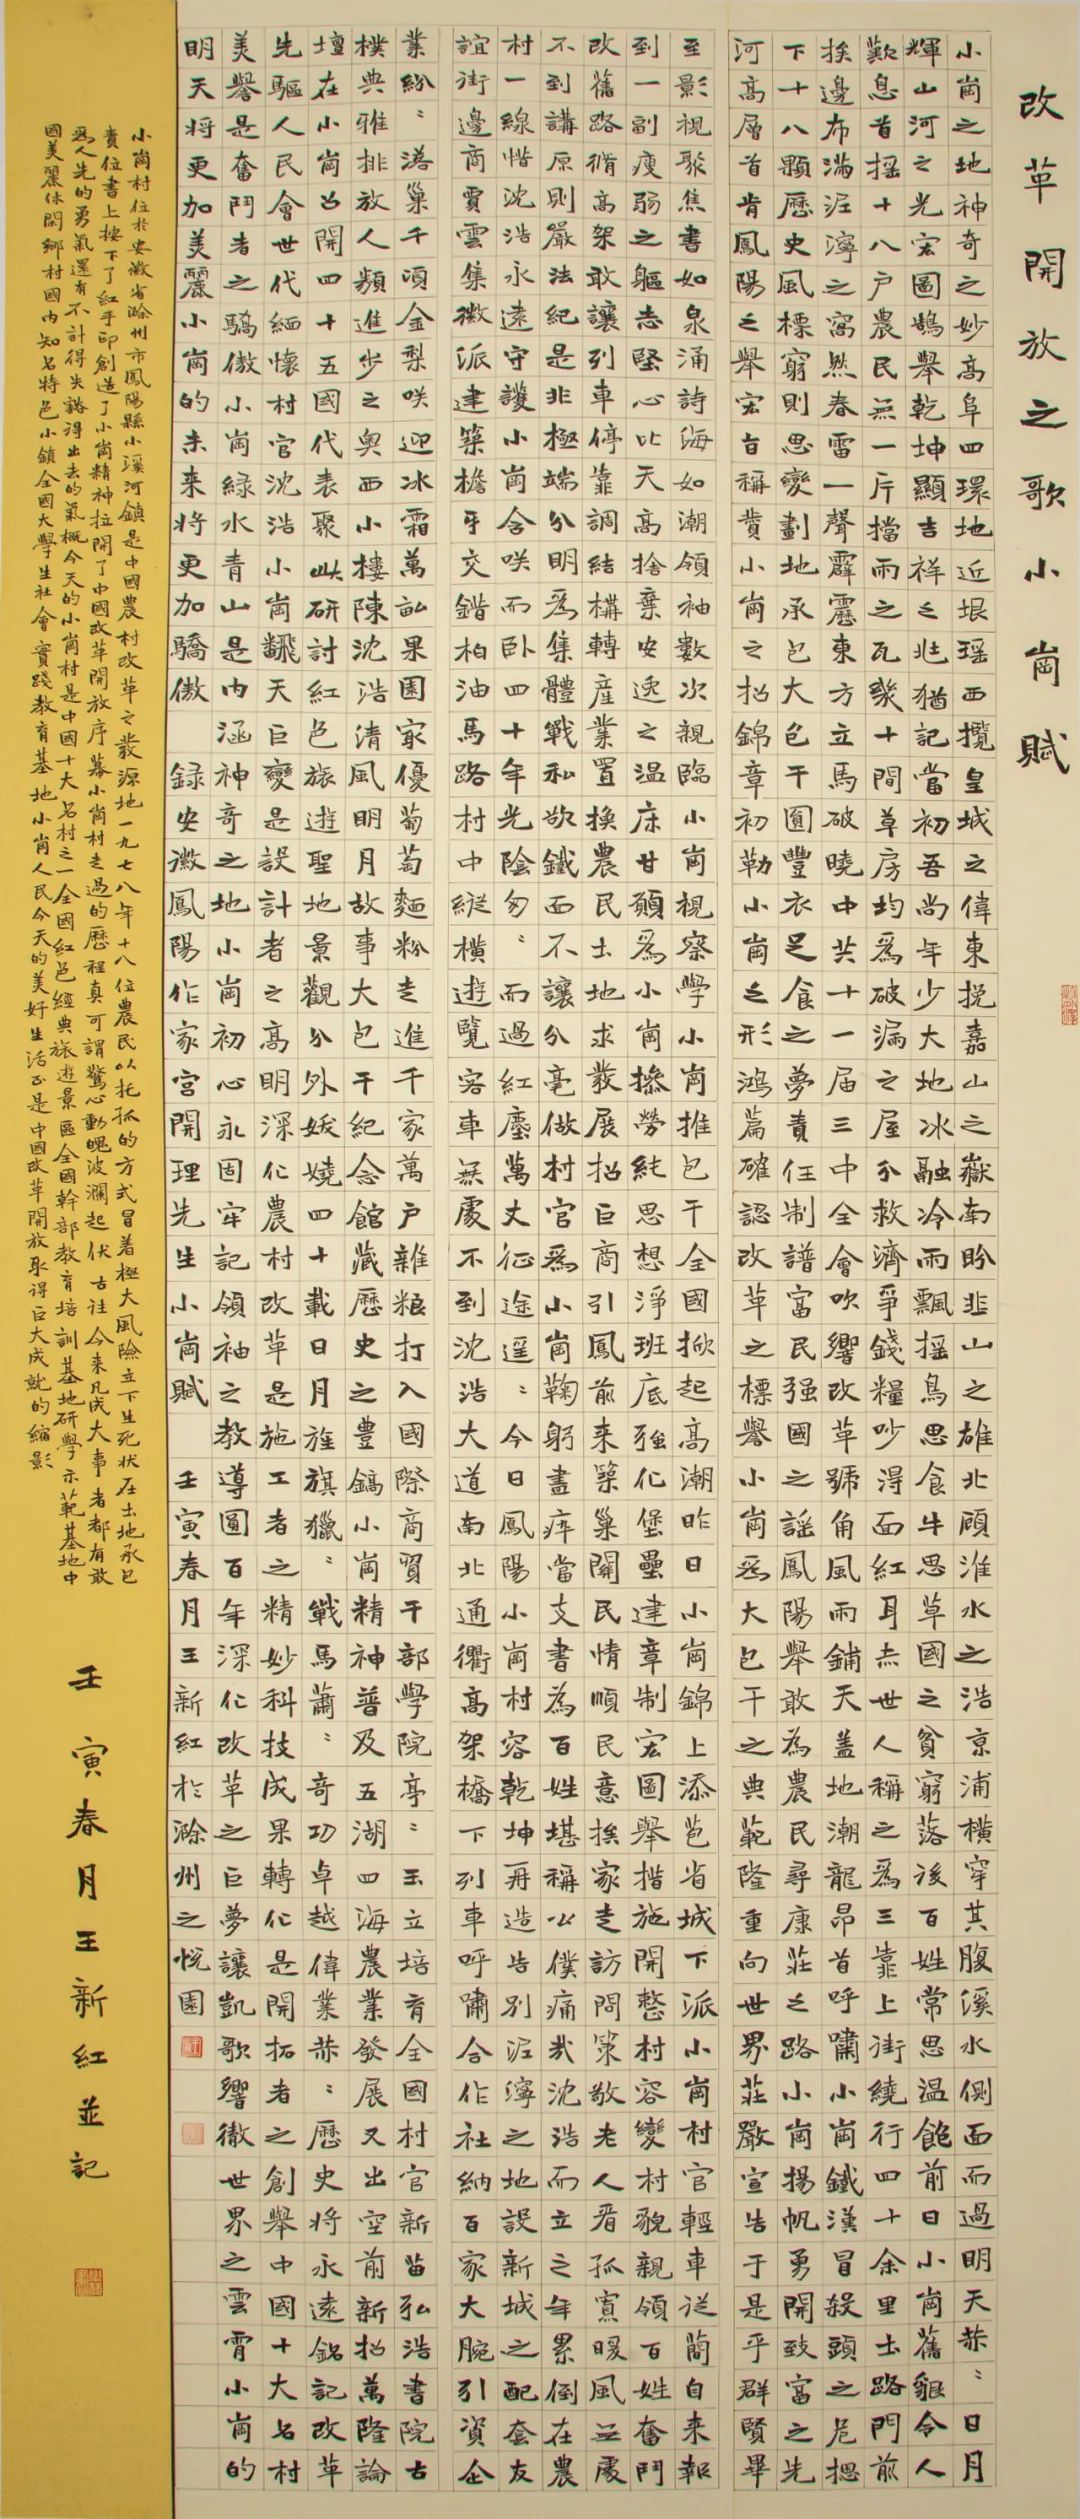 改革開放之歌小崗賦
小崗之地神奇之妙高阜四環地近垠瑶西攬皇城之偉東挽嘉山之嶽南盼韭山之雄北顧淮水之浩京浦横穿其腹溪水側面而過明天恭〻日月
輝山河之光宏圖鵠舉乾坤顯吉祥之兆猶記當初吾尚年少大地冰融冷雨飄摇鳥思食牛思草國之貧窮落後百姓常思温飽前日小崗舊貌令人
歎息首摇十八户農民無一片擋雨之瓦幾十間草房均爲破漏之屋分救濟爭錢糧吵得面紅耳赤世人稱之爲三靠上街繞行四十余里土路門前
挨邊布滿泥濘之窩然春雷一聲霹靂東方立馬破曉中共十一届三中全會吹響改革號角風雨鋪天蓋地潮龍昂首呼嘯小崗鐵漢冒殺頭之危摁
下十八顆歷史風標窮則思變劃地承包大包干圓豐衣足食之夢責任制譜富民强國之謡鳳陽舉敢為農民尋康莊之路小崗揚帆勇開致富之先
河高層首肯鳳陽之舉宏旨稱贊小崗之招錦章初勒小崗之形鴻篇確認改革之標譽小崗爲大包干之典範隆重向世界莊嚴宣告于是乎群賢畢
至影視聚焦書如泉涌詩海如潮領袖數次親臨小崗視察學小崗推包干全國掀起高潮昨日小崗錦上添芭省城下派小崗村官輕車從簡自来報
到一副瘦弱之軀志堅心比天高捨棄安逸之温床甘願爲小崗掺勞純思想淨班底强化堡壘建章制宏圖舉措施開整村容變村貌親領百姓奮鬥
改舊路脩高架敢讓列車停靠調結構轉産業置换農民土地求發展招巨商引鳳前来築巢開民情順民意挨家走訪問策敬老人看孤寡暖風三處
不到講原則嚴法紀是非極端分明爲集體戰私欲鐵面不讓分毫做村官爲小崗鞠躬盡瘁當支書為百姓堪稱公僕痛哉沈浩而立之年累倒在農
村一線惜沈浩永遠守護小崗含咲而卧四十年光陰匆〻而過紅塵萬丈征途遥〻今日鳳陽小崗村容乾坤再造告别泥濘之地設新城之配套友
誼街邊商賈雲集徽派建築檐牙交錯柏油馬路村中縱横遊覽客車無處不到沈浩大道南北通衢高架橋下列車呼嘯合作社納百家大腕引資企
業紛〻落巢千頃金梨咲迎冰霜萬畝果園家優葡萄麵粉走進千家萬户雜粮打入國際商貿干部學院亭〻玉立培育全國村官新苗弘浩書院古
樸典雅排放人類進步之奥西小樓陳沈浩清風明月故事大包干紀念館藏歷史之豐鎬小崗精神普及五湖四海農業發展又出空前新招萬隆論
壇在小崗召開四十五國代表聚此研討紅色旅遊聖地景觀分外妖嬈四十載日月旌旗獵〻戰馬蕭〻奇功卓越偉業恭〻歷史將永遠銘記改革
先驅人民會世代緬懷村官沈浩小崗飜天巨變是設計者之高明深化農村改革是施工者之精妙科技成果轉化是開拓者之創舉中國十大名村
美譽是奮鬥者之驕傲小崗緑水青山是内涵神奇之地小崗初心永固牢記領袖之教導圓百年深化改革之巨夢讓凱歌響徹世界之雲霄小崗的
明天将更加美麗小崗的未来将更加驕傲 録安徽鳳陽作家宫開理先生小崗賦 壬寅春月王新紅於滁州之悦園
小崗村位於安徽省滁州市鳳陽縣小溪河鎮是中國農村改革之發源地一九七八年十八位農民以托孤的方式冒着極大風險立下生死状在土地承包
責位書上按下了紅手印創造了小崗精神拉開了中國改革開放序幕小崗村走過的歷程真可謂驚心動魄波瀾起伏古往今来凡成大事者都有敢
爲人先的勇氣還有不計得失豁得出去的氣概今天的小崗村是中國十大名村之一全國紅色經典旅遊景區全國幹部教育培訓基地研學示範基地中
國美麗休閑鄉村國内知名特色小鎮全國大學生社會實踐教育基地小崗人民今天的美好生活正是中國改革開放取得巨大成就的縮影
壬寅春月王新紅並記